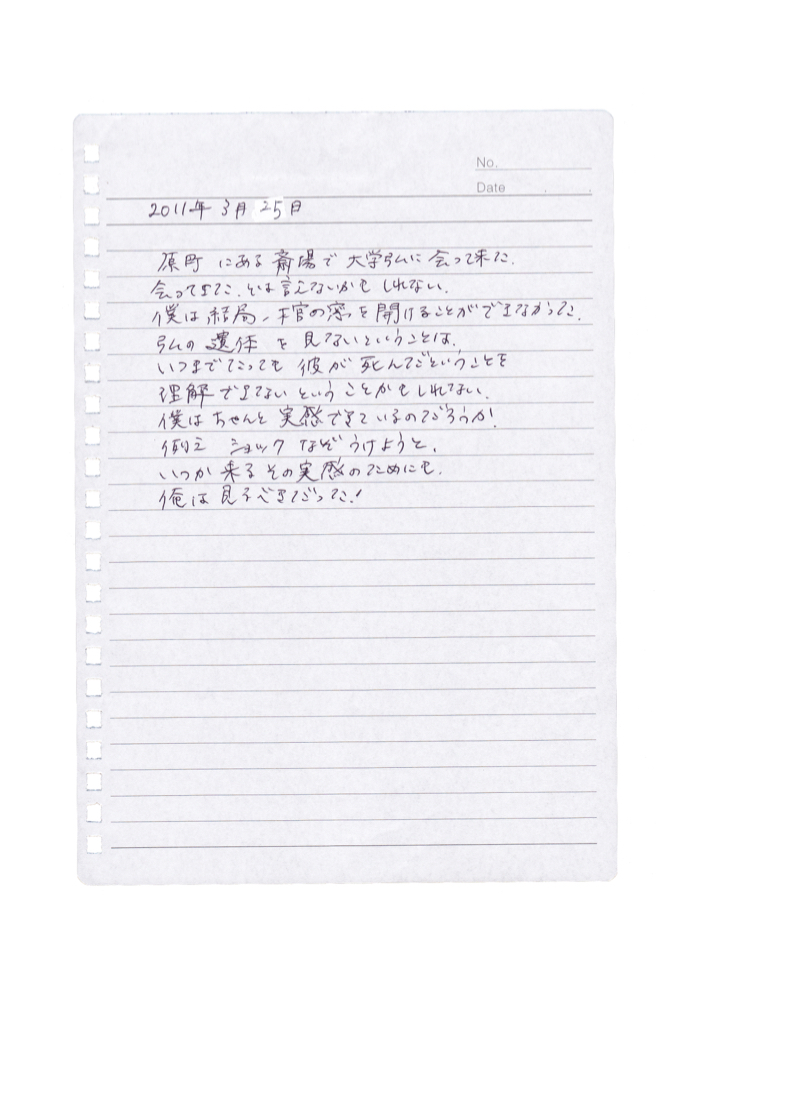 No.
Date . .
2011年 3月 25日
原町 にある 斎場で 大学弘に 会って来た.
会ってきた. とは言えないかも しれない.
僕は 結局、棺の窓を開けることができなかった.
弘の 遺体 を 見ないということは.
いつまでたっても 彼が 死んだということを
理解できない ということかもしれない.
僕はちゃんと 実感できているのだろうか.
例え ショックなぞ うけようと.
いつか来るその実感のためにも.
俺は見るべきだった!